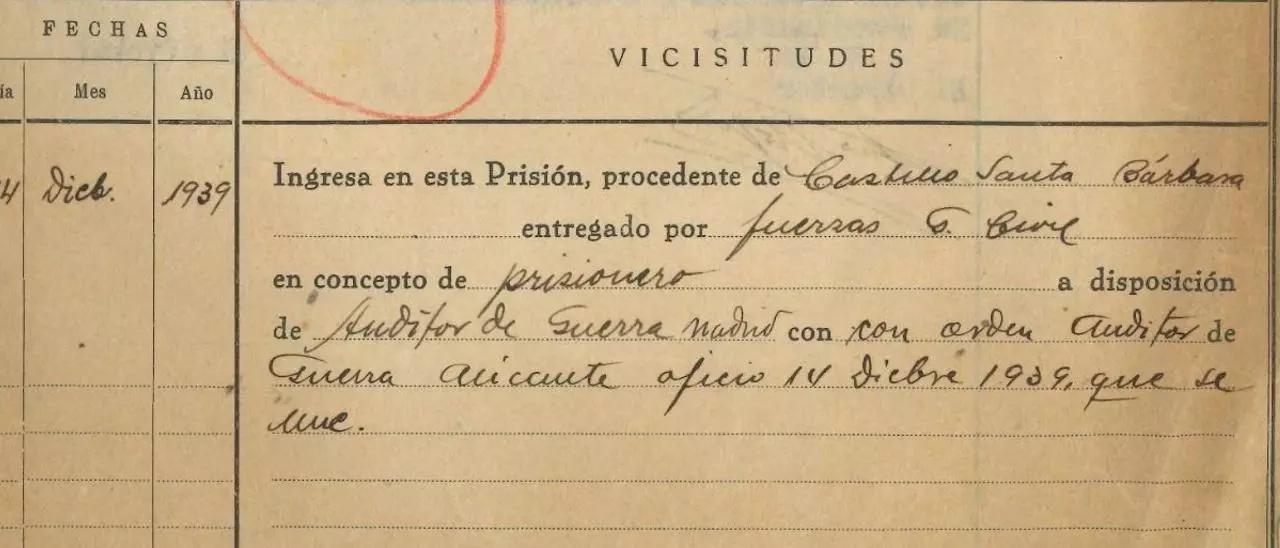 FECHAS
VICISITUDES
ía Mes Año
4 Dicb. 1939 Ingresa en esta Prisión, procedente de Castillo Santa Bárbara
entregado por fuerzas G. Civil
en concepto de prisionero a disposición
de Auditor de Guerra Madrid con con orden Auditor de
Guerra Alicante oficio 14 Dicbre 1939, que se
une.